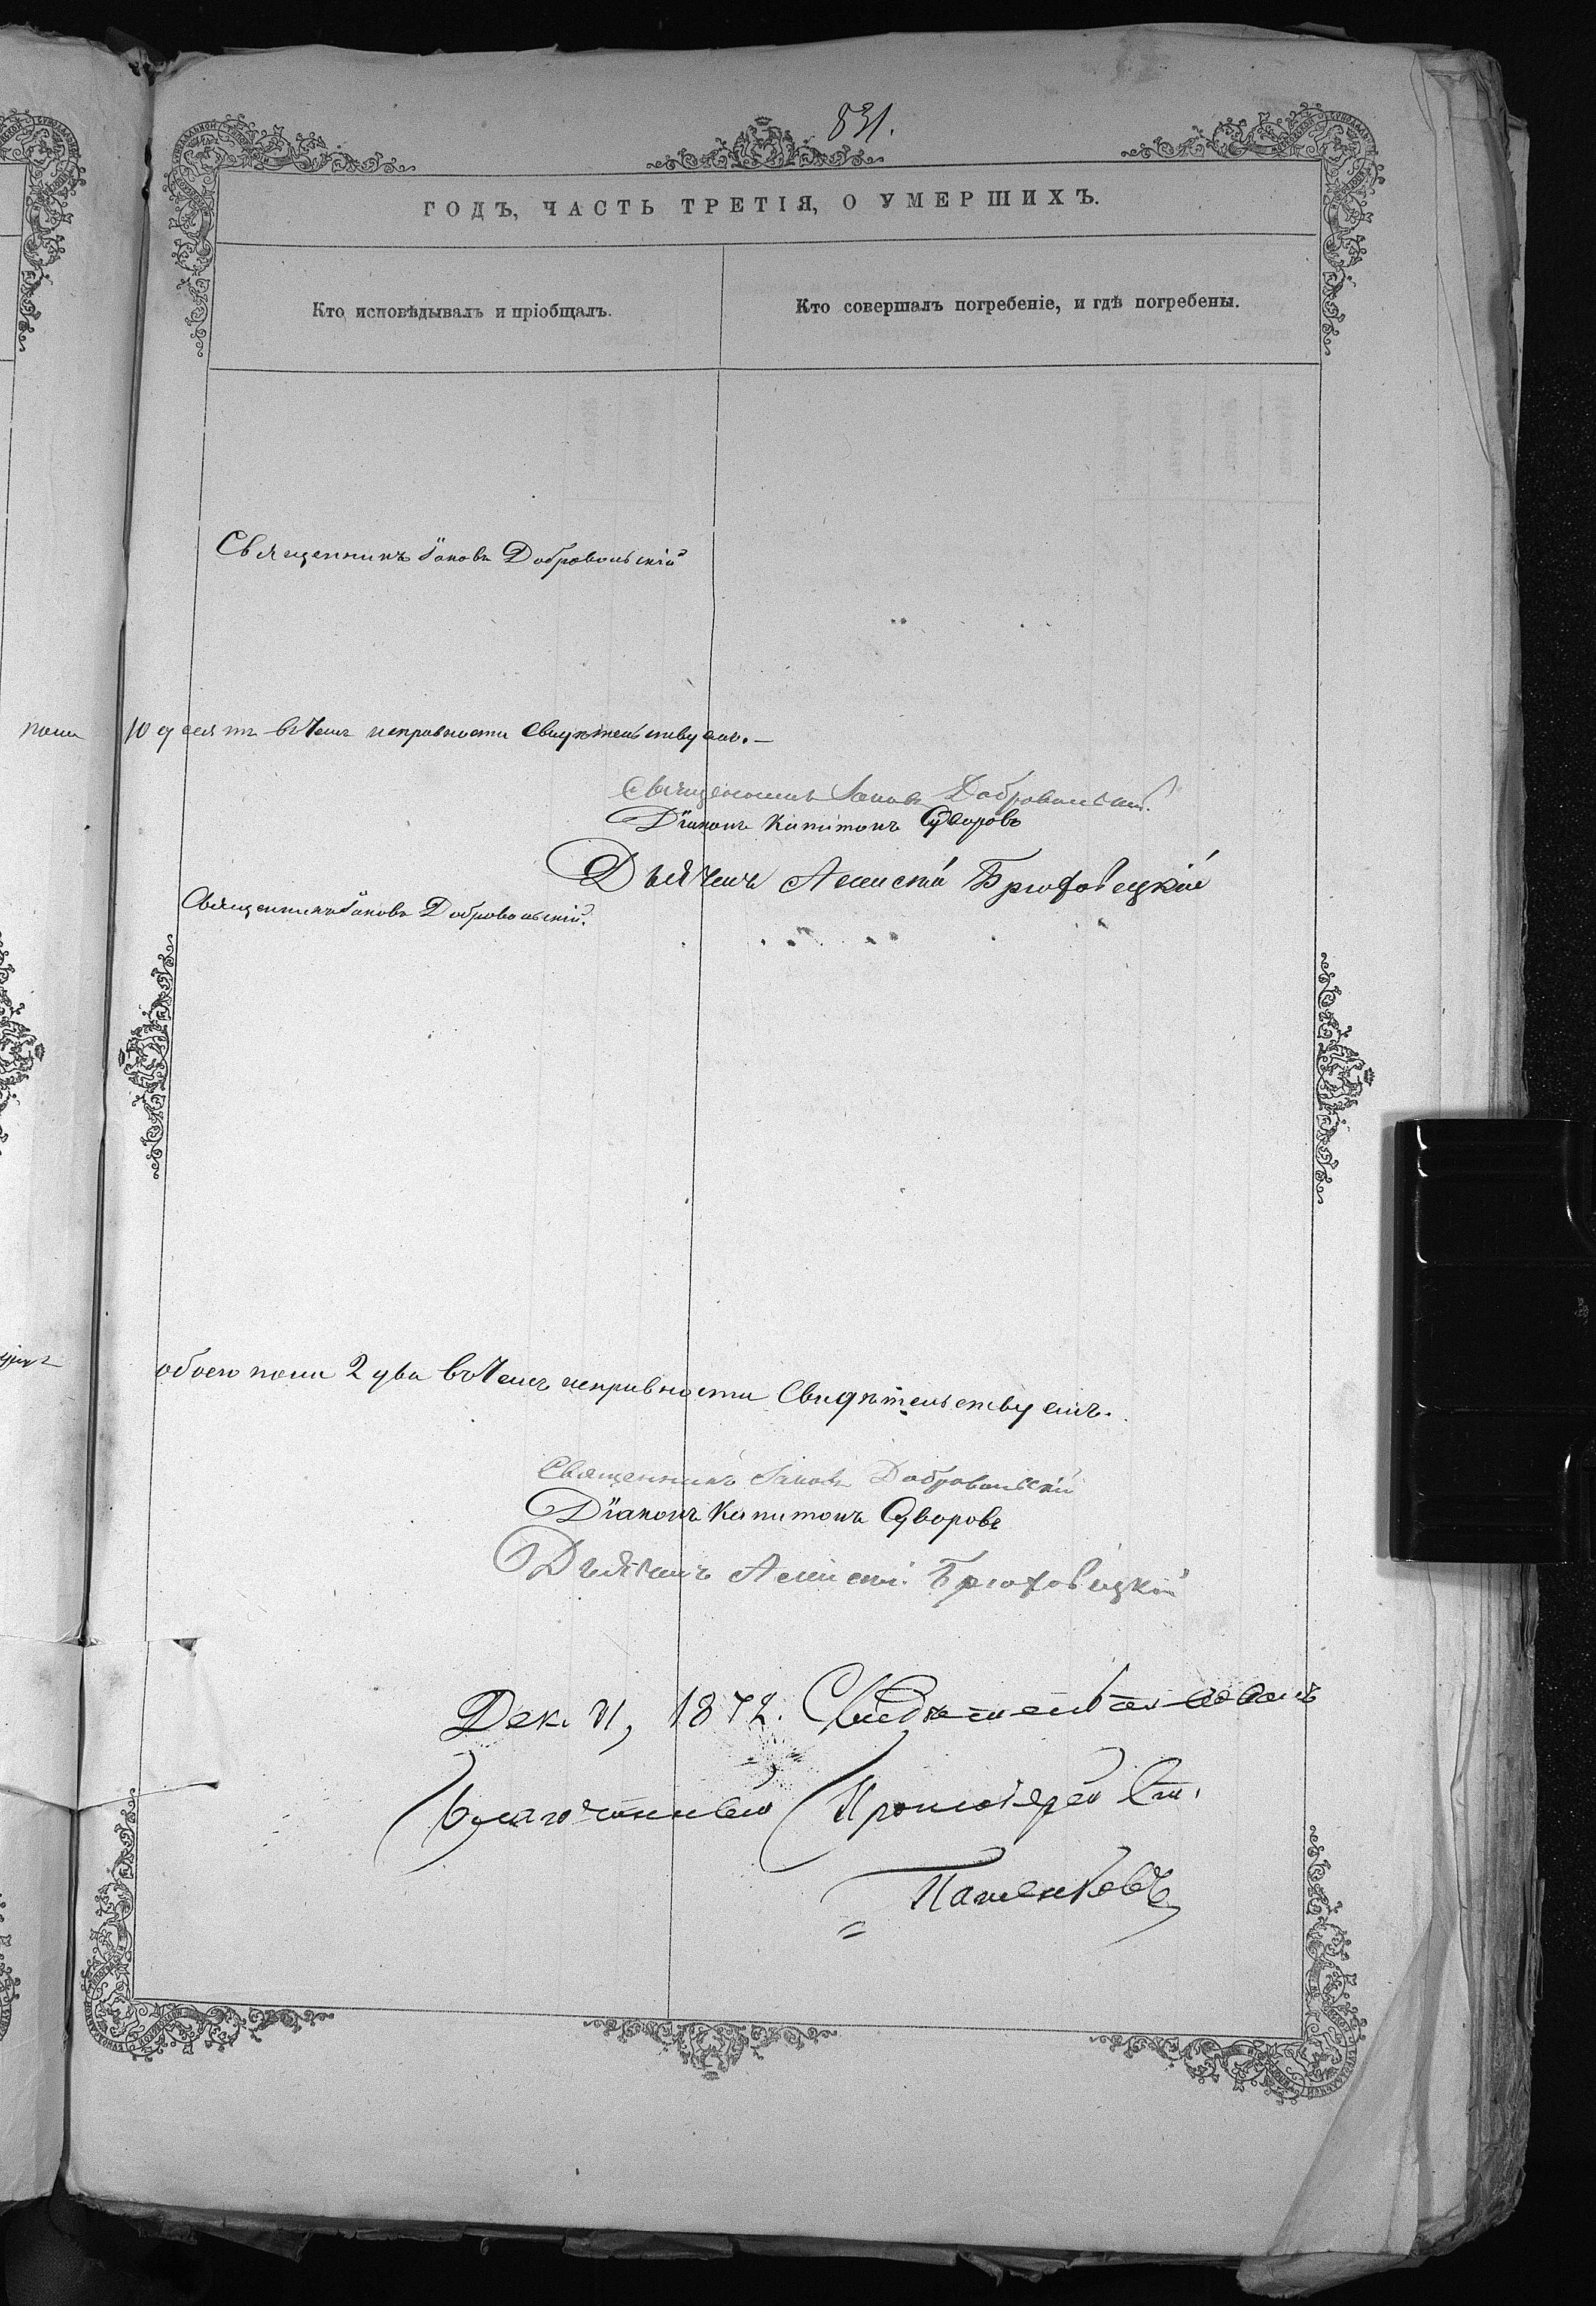 831.
ГОДЪ, ЧАСТЬ ТРЕТІЯ, О УМЕРШИХЪ.
Кто исповѣдывалъ и пріобщалъ.
Кто совершалъ погребеніе, и гдѣ погребены.
Священникъ Іаковъ Добровольскій
пола 10 десять въ чемъ исправности свидѣтельствуемъ.—
Священникъ Іаковъ Добровольскій.
Діаконъ Капитонъ Суворовъ
Дьячекъ Брюховецкій
Священникъ Іаковъ Добровольскій.
обоего пола 2 два въ чемъ исправности свидѣтельствуемъ.
Священникъ Іаковъ Добровольскій
Діаконъ Капитонъ Суворовъ
Дьячекъ Брюховецкій
Дек. 31, 1872. Свидѣтельствовалъ
Благочинный Протоіерей Ст.